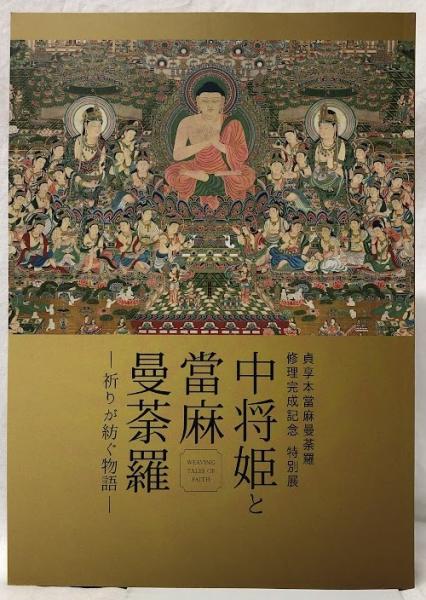 貞享本當麻曼荼羅
修理完成記念 特別展
中将姫と
當麻
曼荼羅
WEAVING
TALES OF
FAITH
―祈りが紡ぐ物語―